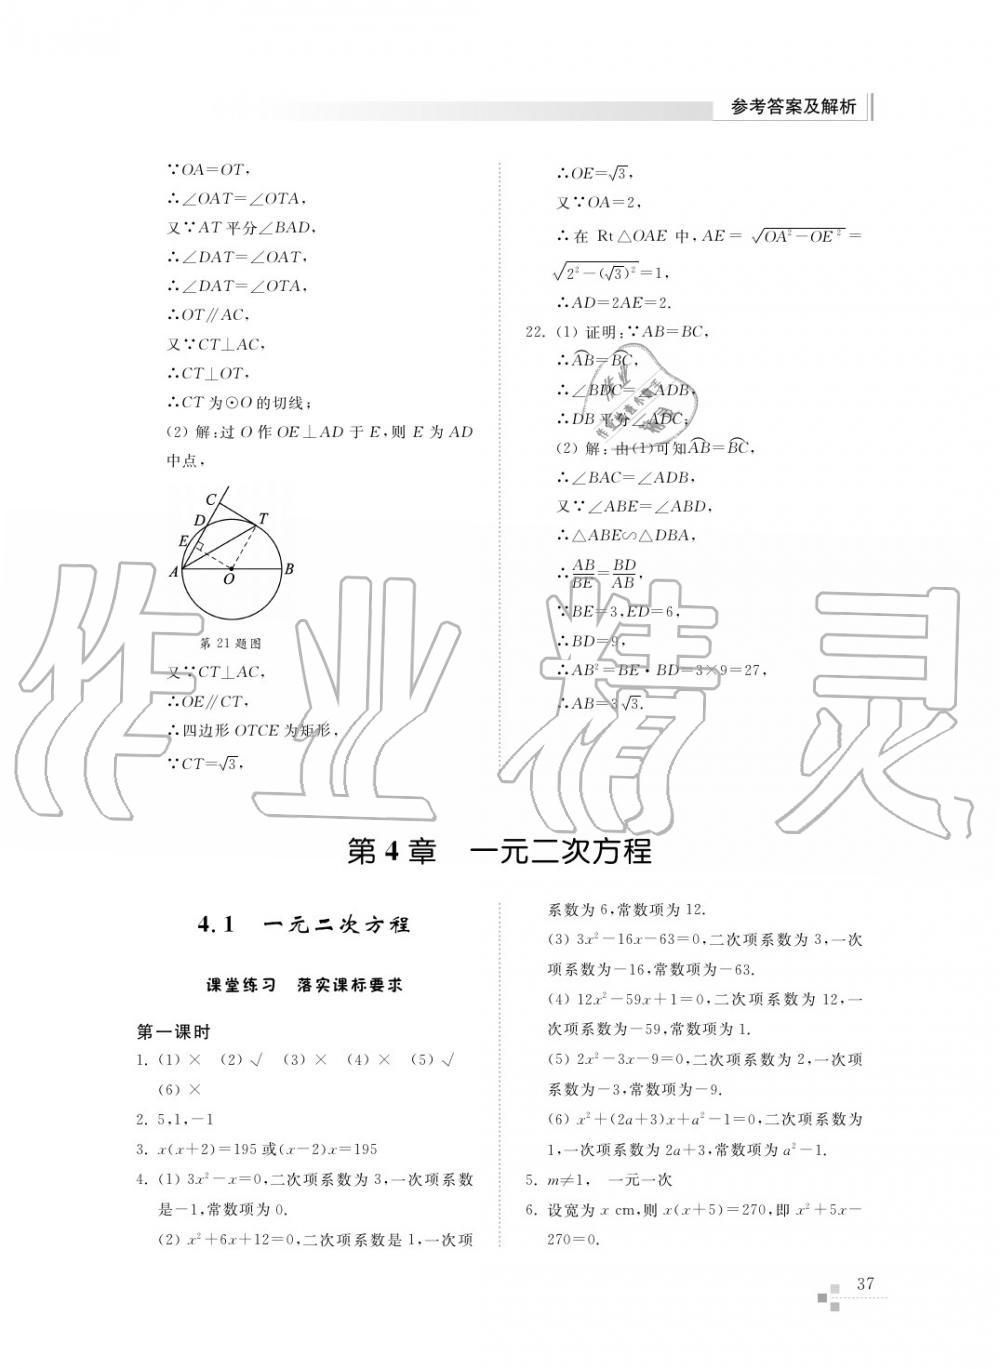 参考答案及解析
∵OA=OT,
∴∠OAT=∠OTA,
又∵AT平分∠BAD,
∴∠DAT=∠OAT,
∴∠DAT=∠OTA,
∴OT∥AC,
又∵CT⊥AC,
∴CT⊥OT,
∴CT为⊙O的切线;
(2) 解:过O作OE⊥AD于E,则E为AD
中点,
C
D
T
E
A
O
B
第21题图
又∵CT⊥AC,
∴OE∥CT,
∴四边形OTCE为矩形,
∵CT=√3,
∴OE=√3,
又∵OA=2,
∴在 Rt△OAE 中,AE=√(OA²-OE²)=
√(2²-(√3)²)=1,
∴AD=2AE=2.
22. (1) 证明:∵AB=BC,
∴⌒AB=⌒BC,
∴∠BDC=∠ADB,
∴DB平分∠ADC;
(2) 解:由(1)可知⌒AB=⌒BC,
∴∠BAC=∠ADB,
又∵∠ABE=∠ABD,
∴△ABE∽△DBA,
∴AB/BE=BD/AB,
∵BE=3,ED=6,
∴BD=9,
∴AB²=BE·BD=3×9=27,
∴AB=3√3.
作业精灵
第4章 一元二次方程
4.1 一元二次方程
课堂练习 落实课标要求
第一课时
1. (1) × (2) √ (3) × (4) × (5) √
(6) ×
2. 5,1,-1
3. x(x+2)=195或(x-2)x=195
4. (1) 3x²-x=0,二次项系数为3,一次项系数
是-1,常数项为0.
(2) x²+6x+12=0,二次项系数是1,一次项
系数为6,常数项为12.
(3) 3x²-16x-63=0,二次项系数为3,一次
项系数为-16,常数项为-63.
(4) 12x²-59x+1=0,二次项系数为12,一
次项系数为-59,常数项为1.
(5) 2x²-3x-9=0,二次项系数为2,一次项
系数为-3,常数项为-9.
(6) x²+(2a+3)x+a²-1=0,二次项系数为
1,一次项系数为2a+3,常数项为a²-1.
5. m≠1, 一元一次
6. 设宽为x cm,则x(x+5)=270,即x²+5x-
270=0.
37